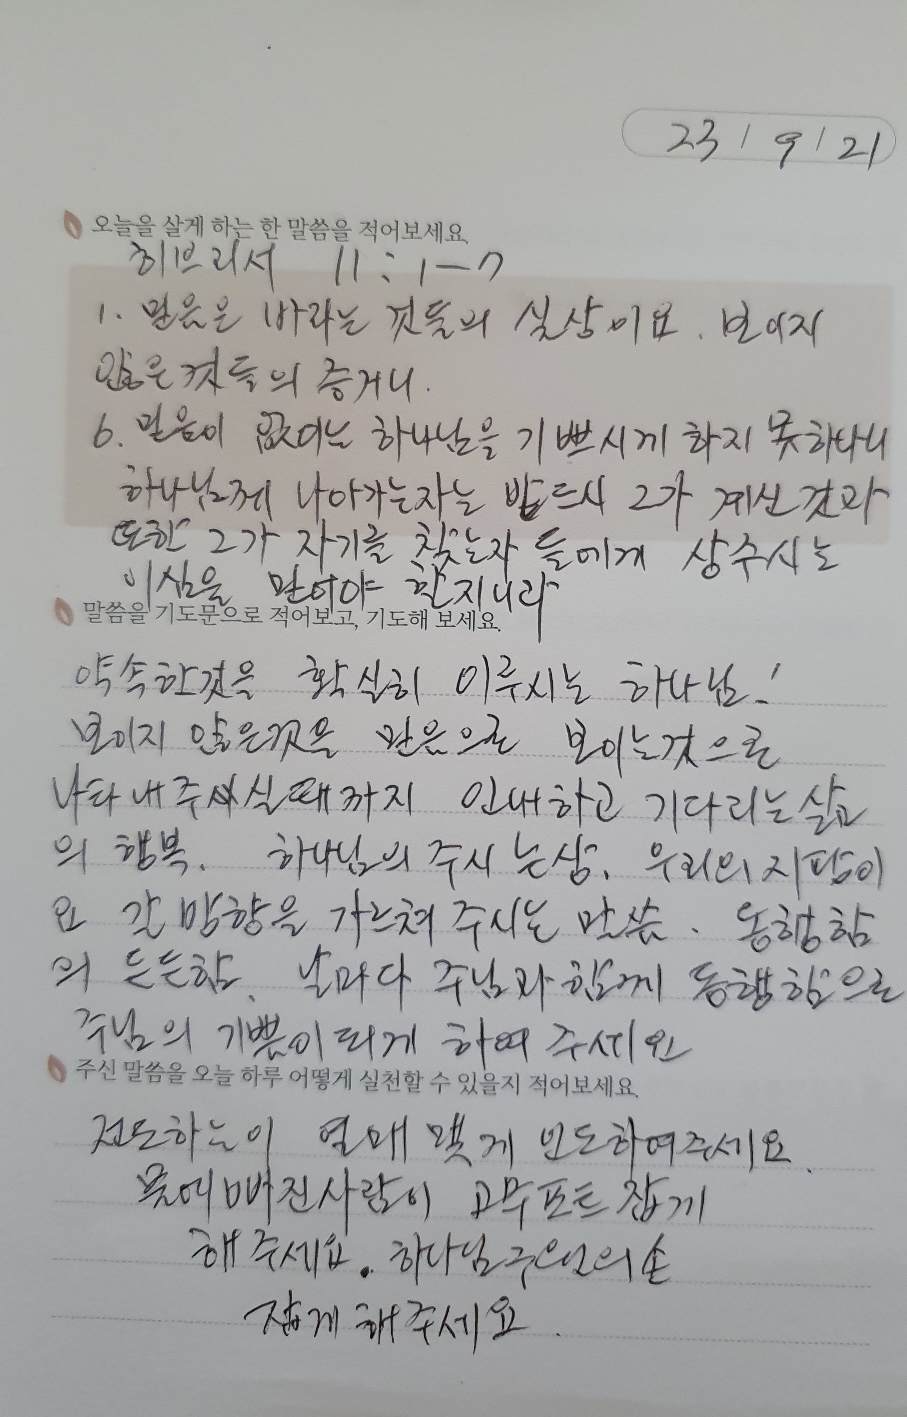 23 / 9 / 21
오늘을 살게 하는 한 말씀을 적어보세요.
히브리서 11 : 1-7
1. 믿음은 바라는 것들의 실상이요. 보이지
않은것들의 증거니.
6. 믿음이 없이는 하나님을 기쁘시게 하지 못하나니
하나님께 나아가는자는 반드시 그가 계신것과
또한 그가 자기를 찾는자 들에게 상주시는
이심을 믿어야 할지니라
말씀을 기도문으로 적어보고, 기도해 보세요.
약속한것을 확실히 이루시는 하나님!
보이지 않은것을 믿음으로 보이는것으로
나타내주실때까지 인내하고 기다리는
의 행복. 하나님의 주시는 우리의 지팡이
요 갈 방향을 가르쳐 주시는 말씀. 동행함
의 든든함. 날마다 주님과 함께 동행함으로
주님의 기쁨이 되게 하여 주세요
주신 말씀을 오늘 하루 어떻게 실천할 수 있을지 적어보세요.
전도하는이 열매 맺게 인도하여주세요.
물에빠진사람이 고무보트 잡게
해주세요. 하나님 손
잡게 해주세요.